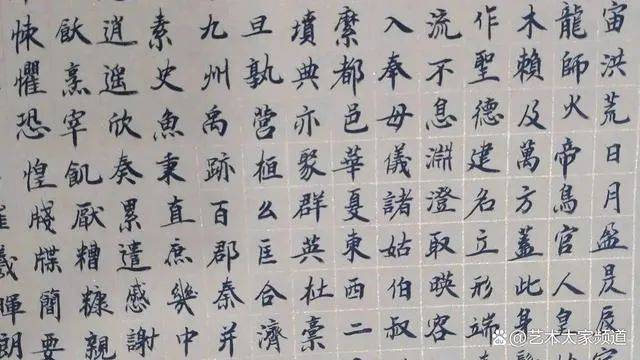 宙洪荒日月盈昃辰
龍師火帝鳥官人皇
木賴及萬方蓋此身
作聖德建名立形端
流不息淵澄取暎容
入奉母儀諸姑伯叔
縻都邑華夏東西二
墳典亦聚群英杜稾
旦孰營桓公匡合濟
九州禹跡百郡秦并
素史魚秉直庶幾中
逍遥欣奏累遣慼謝
飫烹宰飢厭糟糠親
悚懼恐惶牋牒簡要
羲暉朗
@艺术大家频道